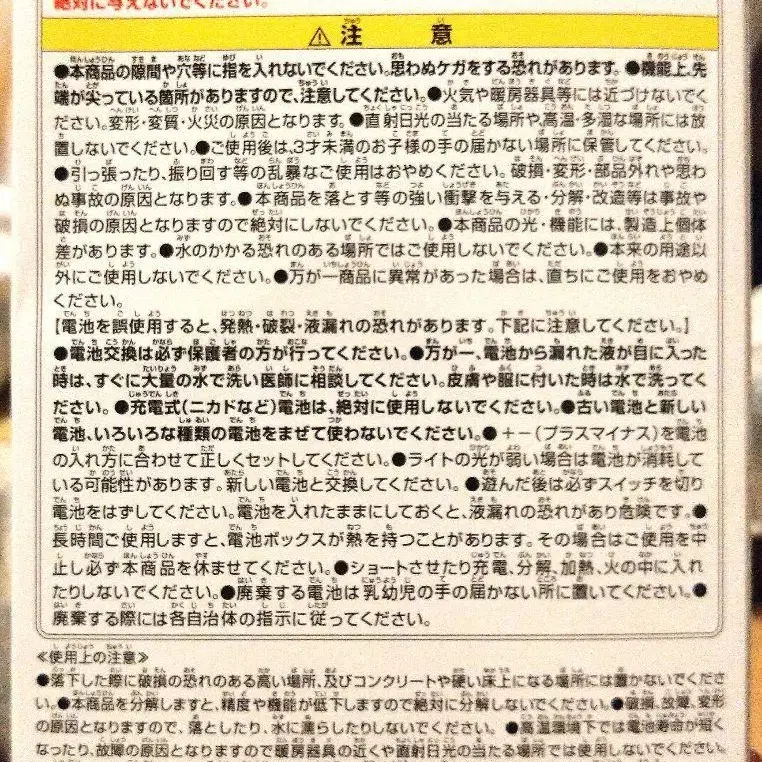 絶対に与えないでください。
⚠注 意
●本商品の隙間や穴等に指を入れないでください。思わぬケガをする恐れがあります。●機能上、先
端が尖っている箇所がありますので、注意してください。●火気や暖房器具等には近づけないでく
ださい。変形・変質・火災の原因となります。●直射日光の当たる場所や、高温・多湿な場所には放
置しないでください。●ご使用後は、3才未満のお子様の手の届かない場所に保管してください。
●引っ張ったり、振り回す等の乱暴なご使用はおやめください。破損・変形・部品外れや思わ
ぬ事故の原因となります。●本商品を落とす等の強い衝撃を与える・分解・改造等は事故や
破損の原因となりますので絶対にしないでください。●本商品の光・機能には、製造上個体
差があります。●水のかかる恐れのある場所ではご使用しないでください。●本来の用途以
外にご使用しないでください。●万が一商品に異常があった場合は、直ちにご使用をおやめ
ください。
【電池を誤使用すると、発熱・破裂・液漏れの恐れがあります。下記に注意してください。】
●電池交換は必ず保護者の方が行ってください。●万が一、電池から漏れた液が目に入った
時は、すぐに大量の水で洗い医師に相談してください。皮膚や服に付いた時は水で洗ってく
ださい。●充電式(ニカドなど)電池は、絶対に使用しないでください。●古い電池と新しい
電池、いろいろな種類の電池をまぜて使わないでください。●+-(プラスマイナス)を電池
の入れ方に合わせて正しくセットしてください。●ライトの光が弱い場合は電池が消耗して
いる可能性があります。新しい電池と交換してください。●遊んだ後は必ずスイッチを切り
電池をはずしてください。電池を入れたままにしておくと、液漏れの恐れがあり危険です。●
長時間ご使用しますと、電池ボックスが熱を持つことがあります。その場合はご使用を中
止し必ず本商品を休ませてください。●ショートさせたり充電、分解、加熱、火の中に入れ
たりしないでください。●廃棄する電池は乳幼児の手の届かない所に置いてください。●
廃棄する際には各自治体の指示に従ってください。
≪使用上の注意≫
●落下した際に破損の恐れのある高い場所、及びコンクリートや硬い床上になる場所には置かないでくださ
い。●本商品を分解しますと、精度や機能が低下しますので絶対に分解しないでください。●破損、故障、変形
の原因となりますので、落としたり、水に濡らしたりしないでください。●高温環境下では電池寿命が短く
なったり、故障の原因となりますので暖房器具の近くや直射日光の当たる場所では使用しないでください。